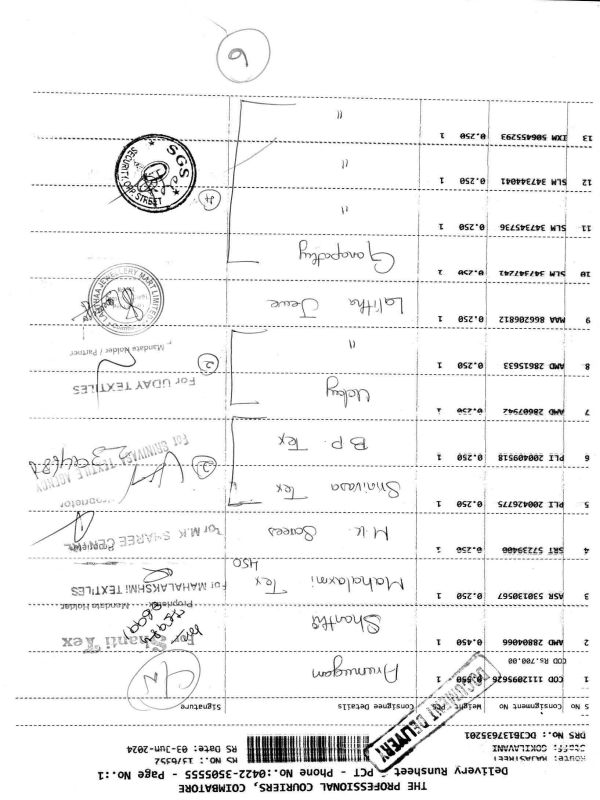 THE PROFESSIONAL COURIERS, COIMBATORE
Delivery Runsheet PCT - Phone No.:0422-3505555 - Page No.:1
Route: RAJASTREET
Staff: COKILAVANI
RS Date: 03-Jun-2024
DRS No.: DCJB137635201
DOCUMENT DELIVERY
S No Consignment No Weight Pcs Consignee Details Signature
1 COD 111209562 1 Arumugan
COD Rs.700.00
2 AMD 28804066 0.450 1 Shanthi
For Shanti Tex
3 ASN 530130567 0.250 1 Mahalaxmi Tex
For MAHALAKSHMI TEXTILES
450
4 SRT 57239400 0.250 1 M.K. Sarees
For M.K SHAREE CENTRE
5 PLI 200426775 0.250 1 Srinivasa Tex
Proprietor
6 PLI 200409518 0.250 1 B.P. Tex
2
For SRINIVASA TEXTILE AGENCY
7 AMD 28607942 0.250 1 Uday
For UDAY TEXTILES
8 AMD 28615633 0.250 1 "
2
Mandate Holder / Partner
9 MAA 866206812 0.250 1 Lalitha Jewe
LALITHAA JEWELLERY MART LIMITED
10 SLM 347347247 0.250 1 Ganapathy
11 SLM 347345736 0.250 1 "
12 SLM 347344041 0.250 1 "
4
SGS
SECURITY
STREET
13 IXM 506455293 0.250 1 "
6